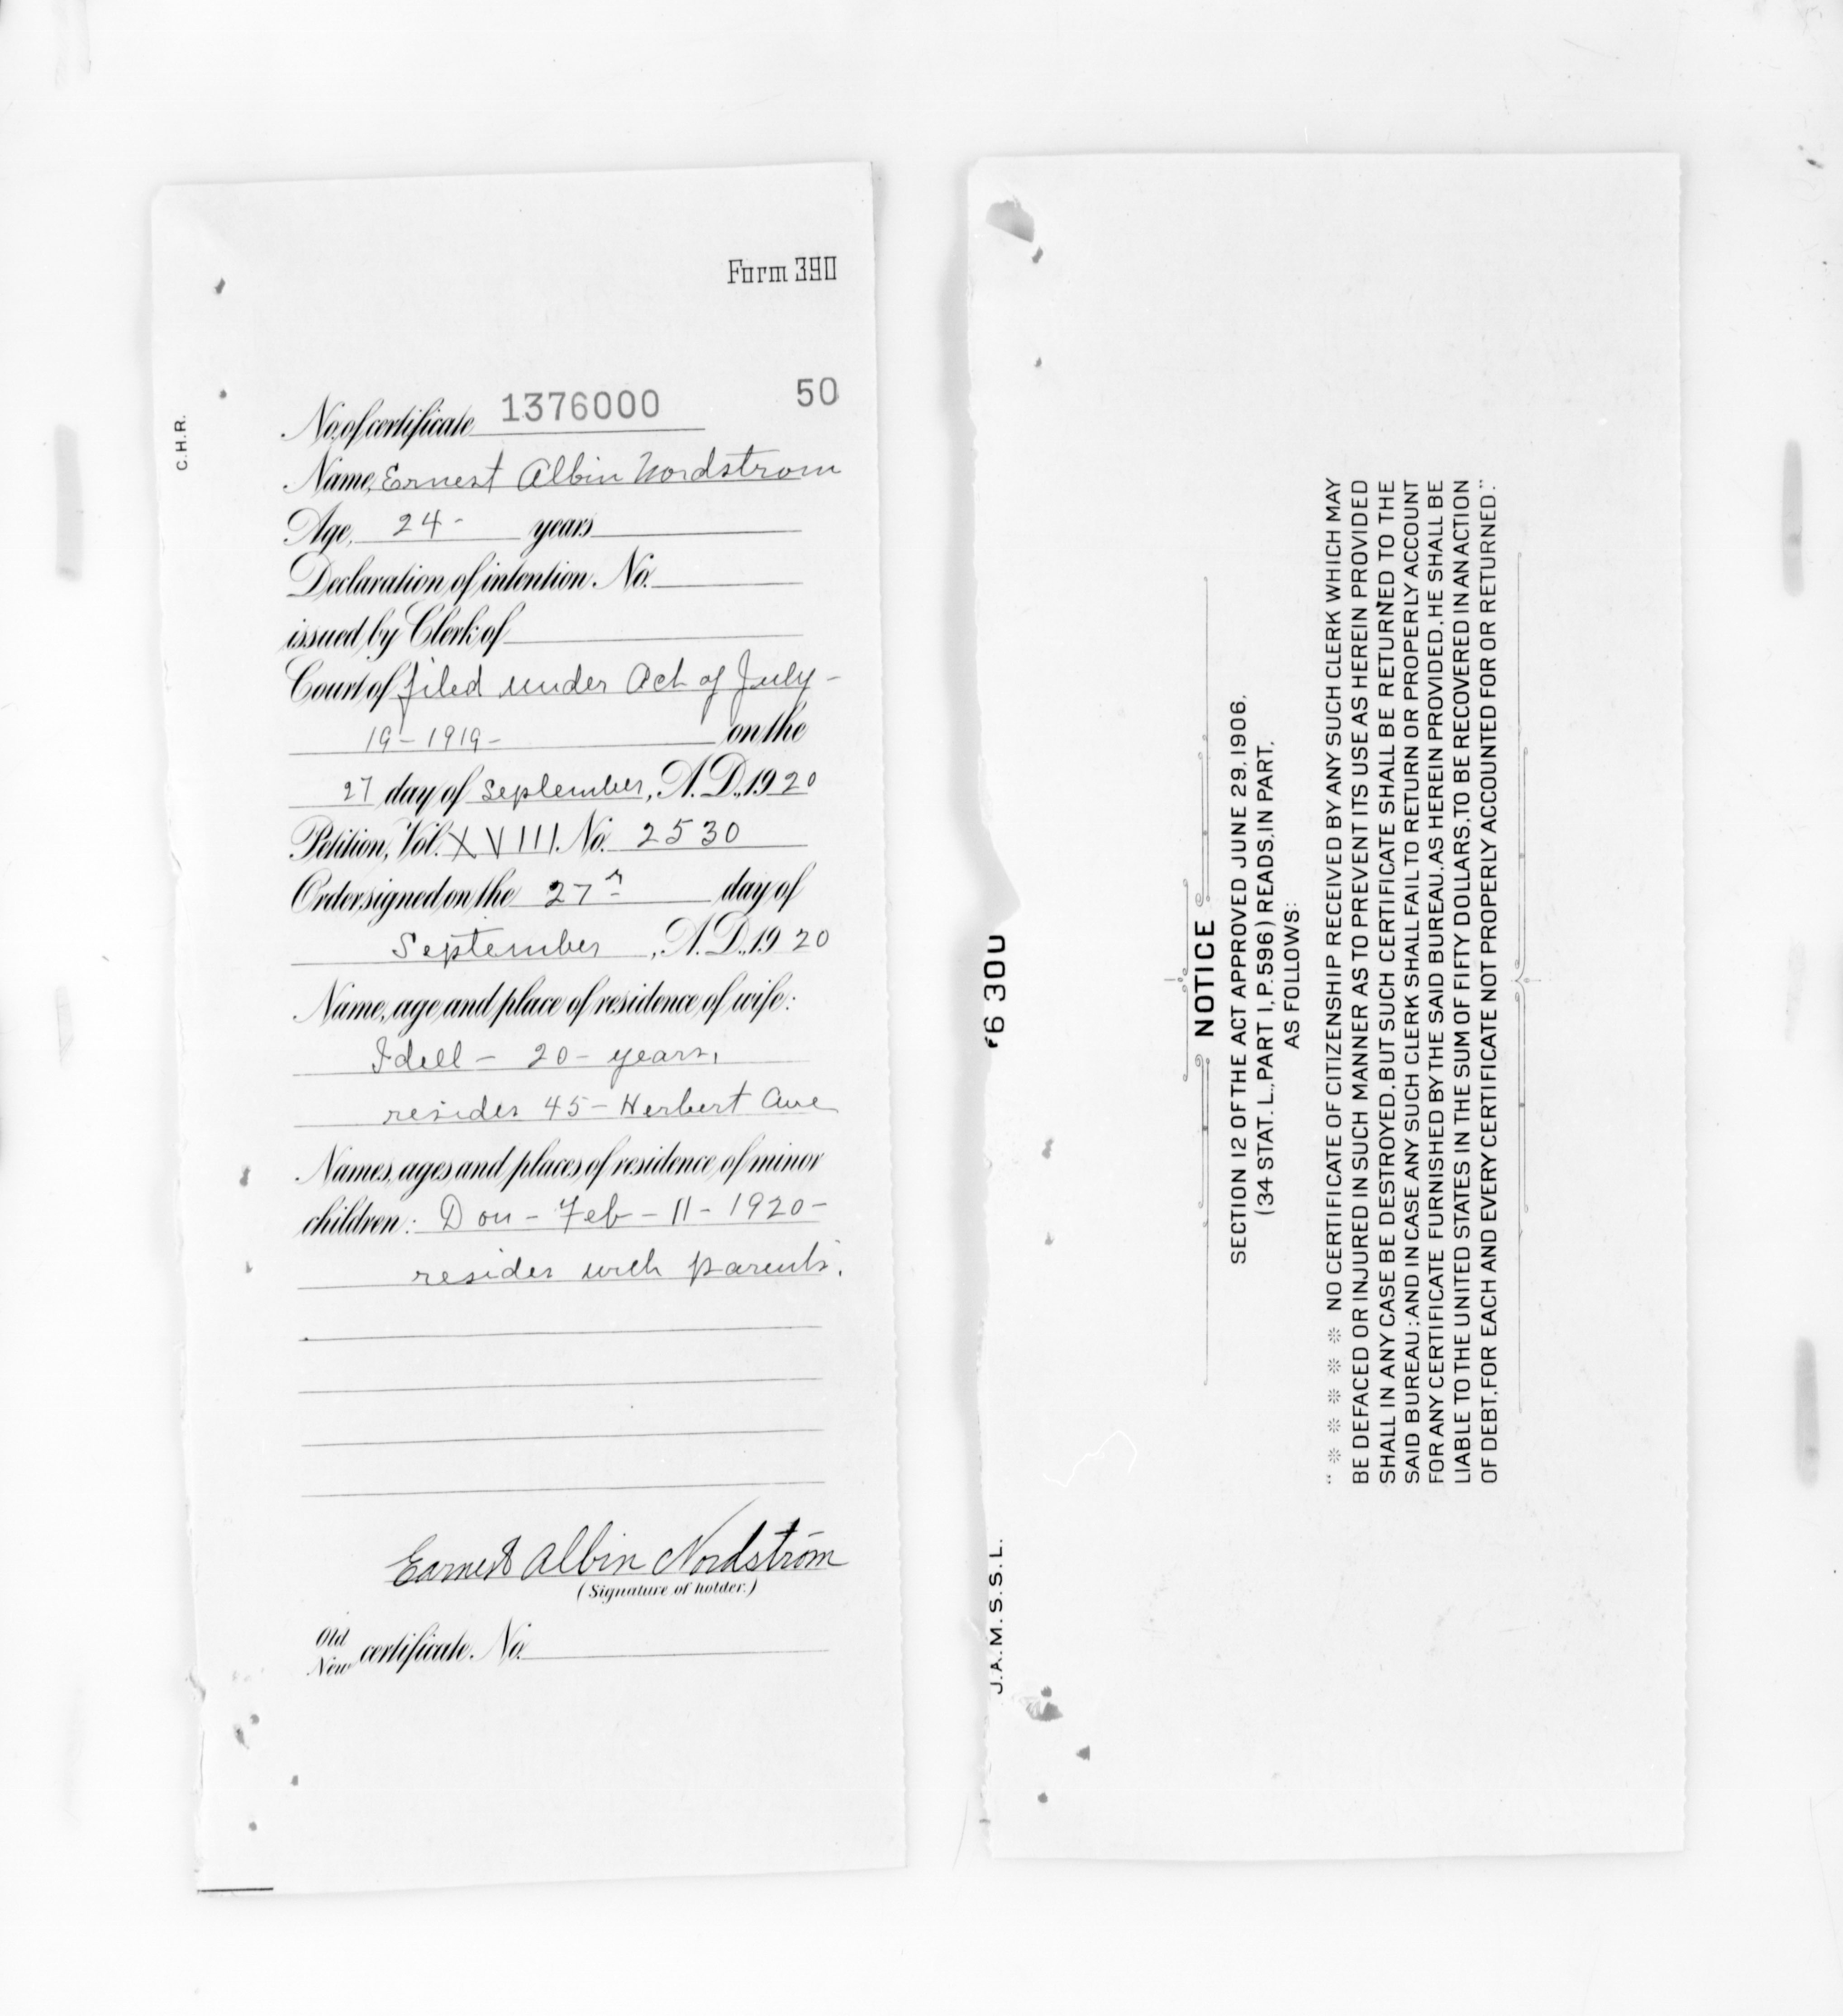 Form 390
C.H.R.
No. of certificate 1376000 50
Name, Ernest Albin Nordstrom
Age, 24 - years
Declaration of intention No.
issued by Clerk of
Court of filed under Act of July -
19 - 1919 - on the
27 day of September, A.D., 1920
Petition, Vol. XVIII. No. 2530
Order signed on the 27th day of
September, A.D., 1920
Name, age and place of residence of wife:
Idell - 20 - years,
resides 45 - Herbert Ave
Names, ages and places of residence of minor
children: Don - Feb - 11 - 1920 -
resides with parents.
Earnest Albin Nordstrom
(Signature of holder.)
Old
New certificate. No.
J.A.M.S.S.L.
NOTICE
SECTION 12 OF THE ACT APPROVED JUNE 29, 1906.
(34 STAT. L., PART I, P. 596) READS, IN PART,
AS FOLLOWS:
" * * * * * NO CERTIFICATE OF CITIZENSHIP RECEIVED BY ANY SUCH CLERK WHICH MAY
BE DEFACED OR INJURED IN SUCH MANNER AS TO PREVENT ITS USE AS HEREIN PROVIDED
SHALL IN ANY CASE BE DESTROYED, BUT SUCH CERTIFICATE SHALL BE RETURNED TO THE
SAID BUREAU; AND IN CASE ANY SUCH CLERK SHALL FAIL TO RETURN OR PROPERLY ACCOUNT
FOR ANY CERTIFICATE FURNISHED BY THE SAID BUREAU, AS HEREIN PROVIDED, HE SHALL BE
LIABLE TO THE UNITED STATES IN THE SUM OF FIFTY DOLLARS, TO BE RECOVERED IN AN ACTION
OF DEBT, FOR EACH AND EVERY CERTIFICATE NOT PROPERLY ACCOUNTED FOR OR RETURNED."